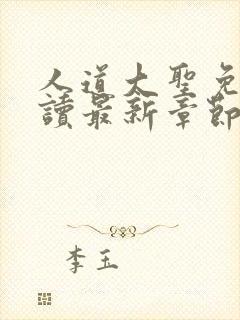 人道大聖免
讀最新章節
李玉